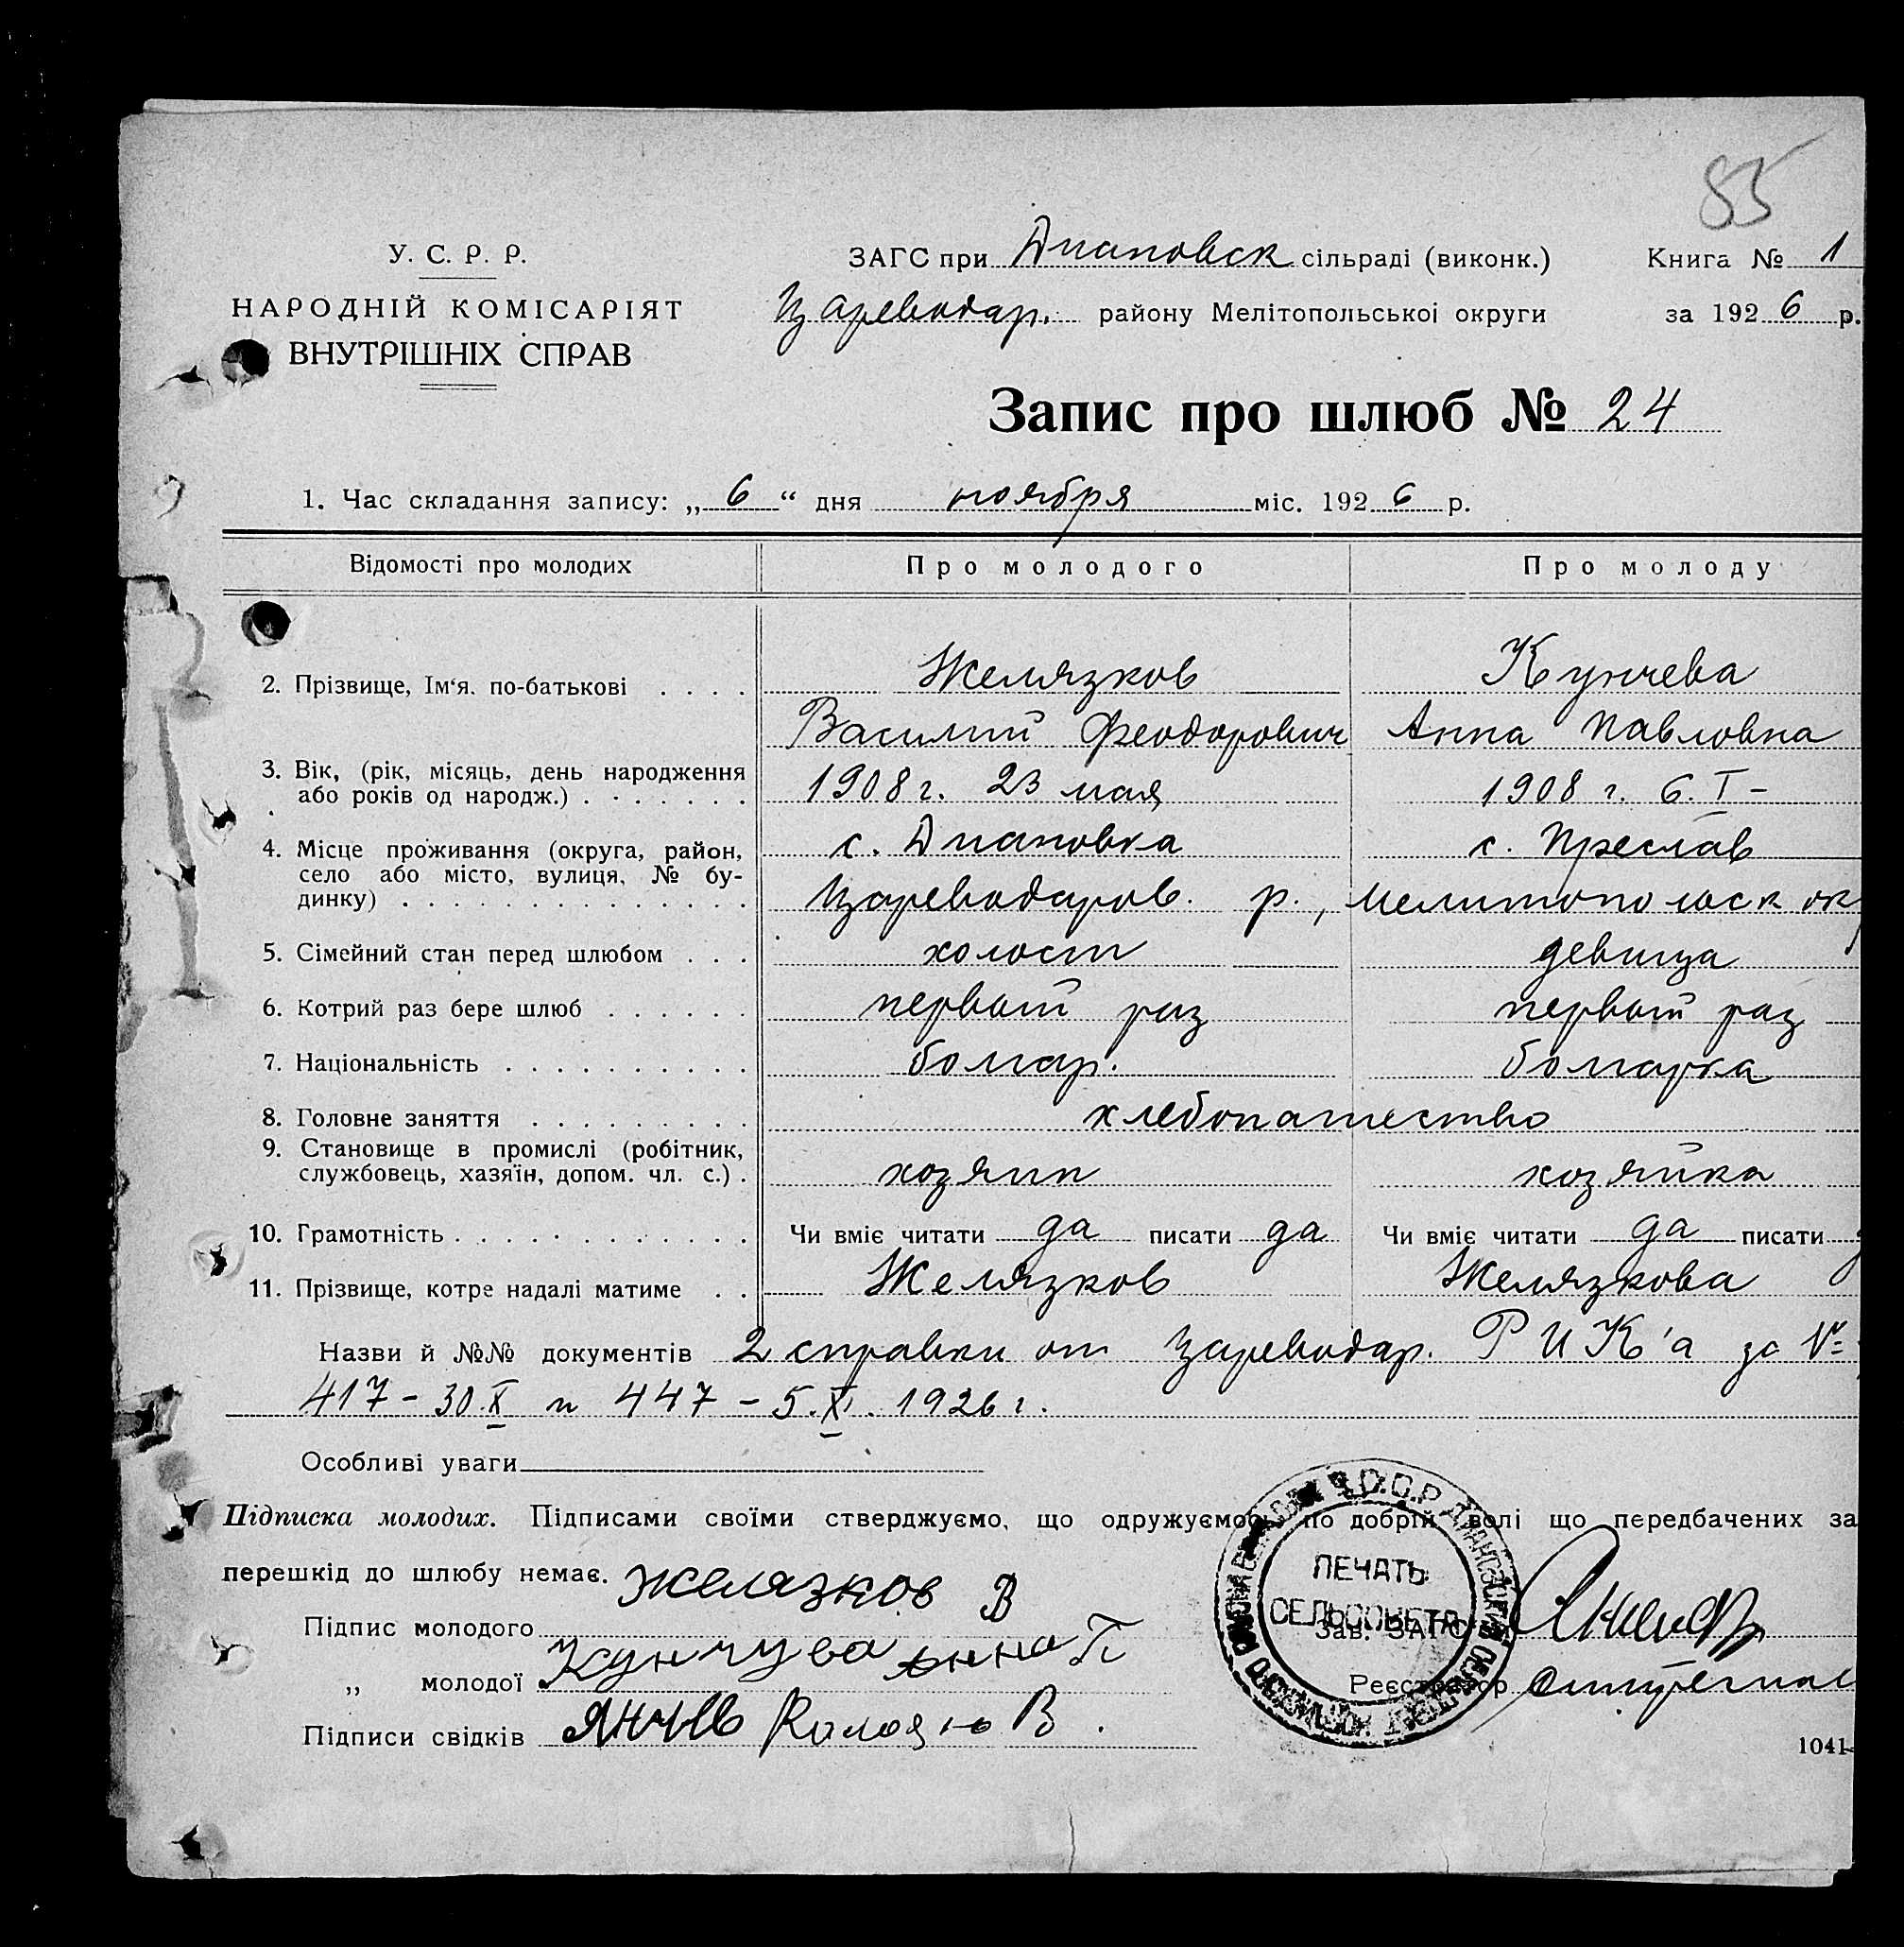 85
У. С. Р. Р.
НАРОДНІЙ КОМІСАРІЯТ
ВНУТРІШНІХ СПРАВ
ЗАГС при Диановск сільраді (виконк.)
Книга № 1
Цареводар. району Мелітопольської округи
за 1926 р.
Запис про шлюб № 24
1. Час складання запису: „6“ дня ноября міс. 1926 р.
Відомості про молодих Про молодого Про молоду
2. Прізвище, Ім‘я. по-батькові . . . . Желязков Кунчева
Василий Феодорович Анна Павловна
3. Вік, (рік, місяць, день народження
або років од народж.) . . . . . . . 1908 г. 23 мая 1908 г. 6. I –
4. Місце проживання (округа, район, с. Диановка с. Преслав
село або місто, вулиця, № бу-
динку) . . . . . . . . . . . . . . Цареводаров. р., Мелитопольск ок
5. Сімейний стан перед шлюбом . . . холост девица
6. Котрий раз бере шлюб . . . . . . первый раз первый раз
7. Національність . . . . . . . . . . болгар. болгарка
8. Головне заняття . . . . . . . . . хлебопашество
9. Становище в промислі (робітник,
службовець, хазяїн, допом. чл. с.) . хозяин хозяйка
10. Грамотність . . . . . . . . . . . . Чи вміє читати да писати да Чи вміє читати да писати
11. Прізвище, котре надалі матиме . . Желязков Желязкова
Назви й №№ документів 2 справки от Цареводар. РИК'а за №
417 – 30.X и 447 – 5.XI. 1926 г.
Особливі уваги
Підписка молодих. Підписами своїми стверджуємо, що одружуємось по добрій волі що передбачених за
перешкід до шлюбу немає.
Підпис молодого Желязков В
„ молодої Кунчува Анна П
Підписи свідків Янчев В.
ПЕЧАТЬ
СЕЛЬСОВЕТА
Зав. ЗАГС'ом
Реєстратор
1041